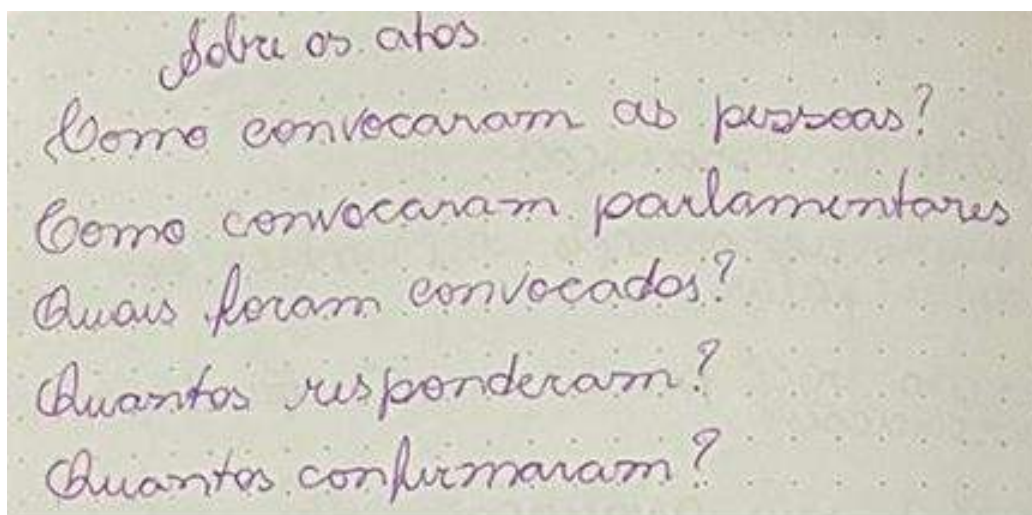 Sobre os atos
Como convocaram as pessoas?
Como convocaram parlamentares
Quais foram convocados?
Quantos responderam?
Quantos confirmaram?